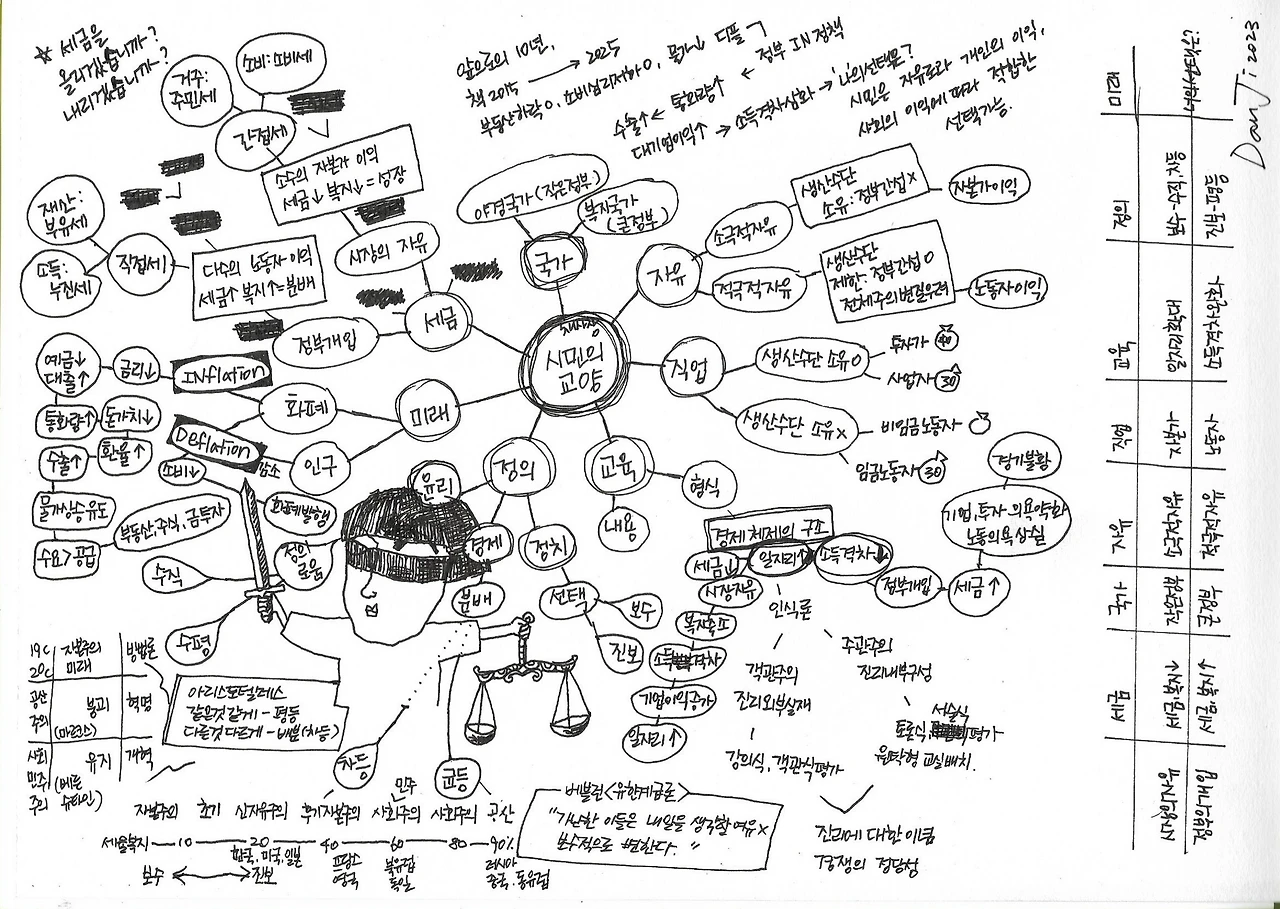 ☆ 세금을
올리겠습니까?
내리겠습니까?
앞으로의 10년,
책 2015 → 2025
부동산하락 O, 소비심리저하 O, 물가↓ 디플 ㄱ
수출↑ ← 통화량↑ ← 정부 IN 정책
대기업이익↑ → 소득격차심화 → '나'의선택은?
시민은 자유로와 개인의 이익,
사회의 이익에 따라 적합한
선택가능.
DanJi 2023
소비: 소비세
거주:
주민세
간접세
소수의 자본가 이익
세금↓ 복지↓ = 성장
시장의 자유
재산:
부유세
소득:
누진세
직접세
다수의 노동자 이익
세금↑ 복지↑ = 분배
정부개입
세금
야경국가 (작은정부)
복지국가
(큰정부)
국가
자유
소극적자유
생산수단
소유: 정부간섭 X
자본가이익
적극적자유
생산수단
제한: 정부간섭 O
전체주의변질우려
노동자이익
채사장
시민의
교양
직업
생산수단 소유 O
투자가 40
사업자 30
생산수단 소유 X
비임금노동자
임금노동자 30
미래
화폐
INflation
금리↓
예금↓
대출↑
통화량↑
돈가치↓
수출↑
환율↑
물가상승유도
수요>공급
인구
감소
Deflation
소비↓
화폐발행
부동산, 주식, 금투자
정의
윤리
경제
분배
정치
선택
보수
진보
정의
로움
수직
수평
교육
형식
내용
경제 체제의 구조
세금↓
일자리↑
소득격차
정부개입
세금↑
기업, 투자 의욕약화
노동의욕 상실
경기불황
시장자유
복지축소
소득격차
기업이익증가
일자리↑
인식론
객관주의
진리외부실재
강의식, 객관식평가
주관주의
진리내부구성
서술식
토론식 평가
원탁형 교실배치.
진리에 대한 이념
경쟁의 정당성
19C
20C
자본주의
미래
방법론
공산
주의
붕괴
(마르크스)
혁명
사회
민주
주의
유지
(베른
슈타인)
개혁
아리스토텔레스
같은것 같게 - 평등
다른것 다르게 - 배분(차등)
차등
균등
자본주의 초기 신자유주의 후기자본주의 민주사회주의 사회주의 공산
세율복지 — 10 — 20 — 40 — 60 — 80 — 90%
한국, 미국, 일본
프랑스
영국
북유럽
독일
러시아
중국, 동유럽
보수 ⟷ 진보
베블런<유한계급론>
"가난한 이들은 내일을 생각할 여유 X
보수적으로 변한다."
미래
문제